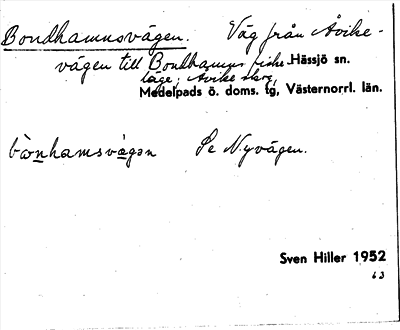 Bondhamnsvägen. Väg från Åvike-
vägen till Bondhamns fiske-
läge; Åvike skog,
Hässjö sn.
Medelpads ö. doms. tg, Västernorrl. län.
bònhamsvàgən Se Nyvägen.
Sven Hiller 1952
63